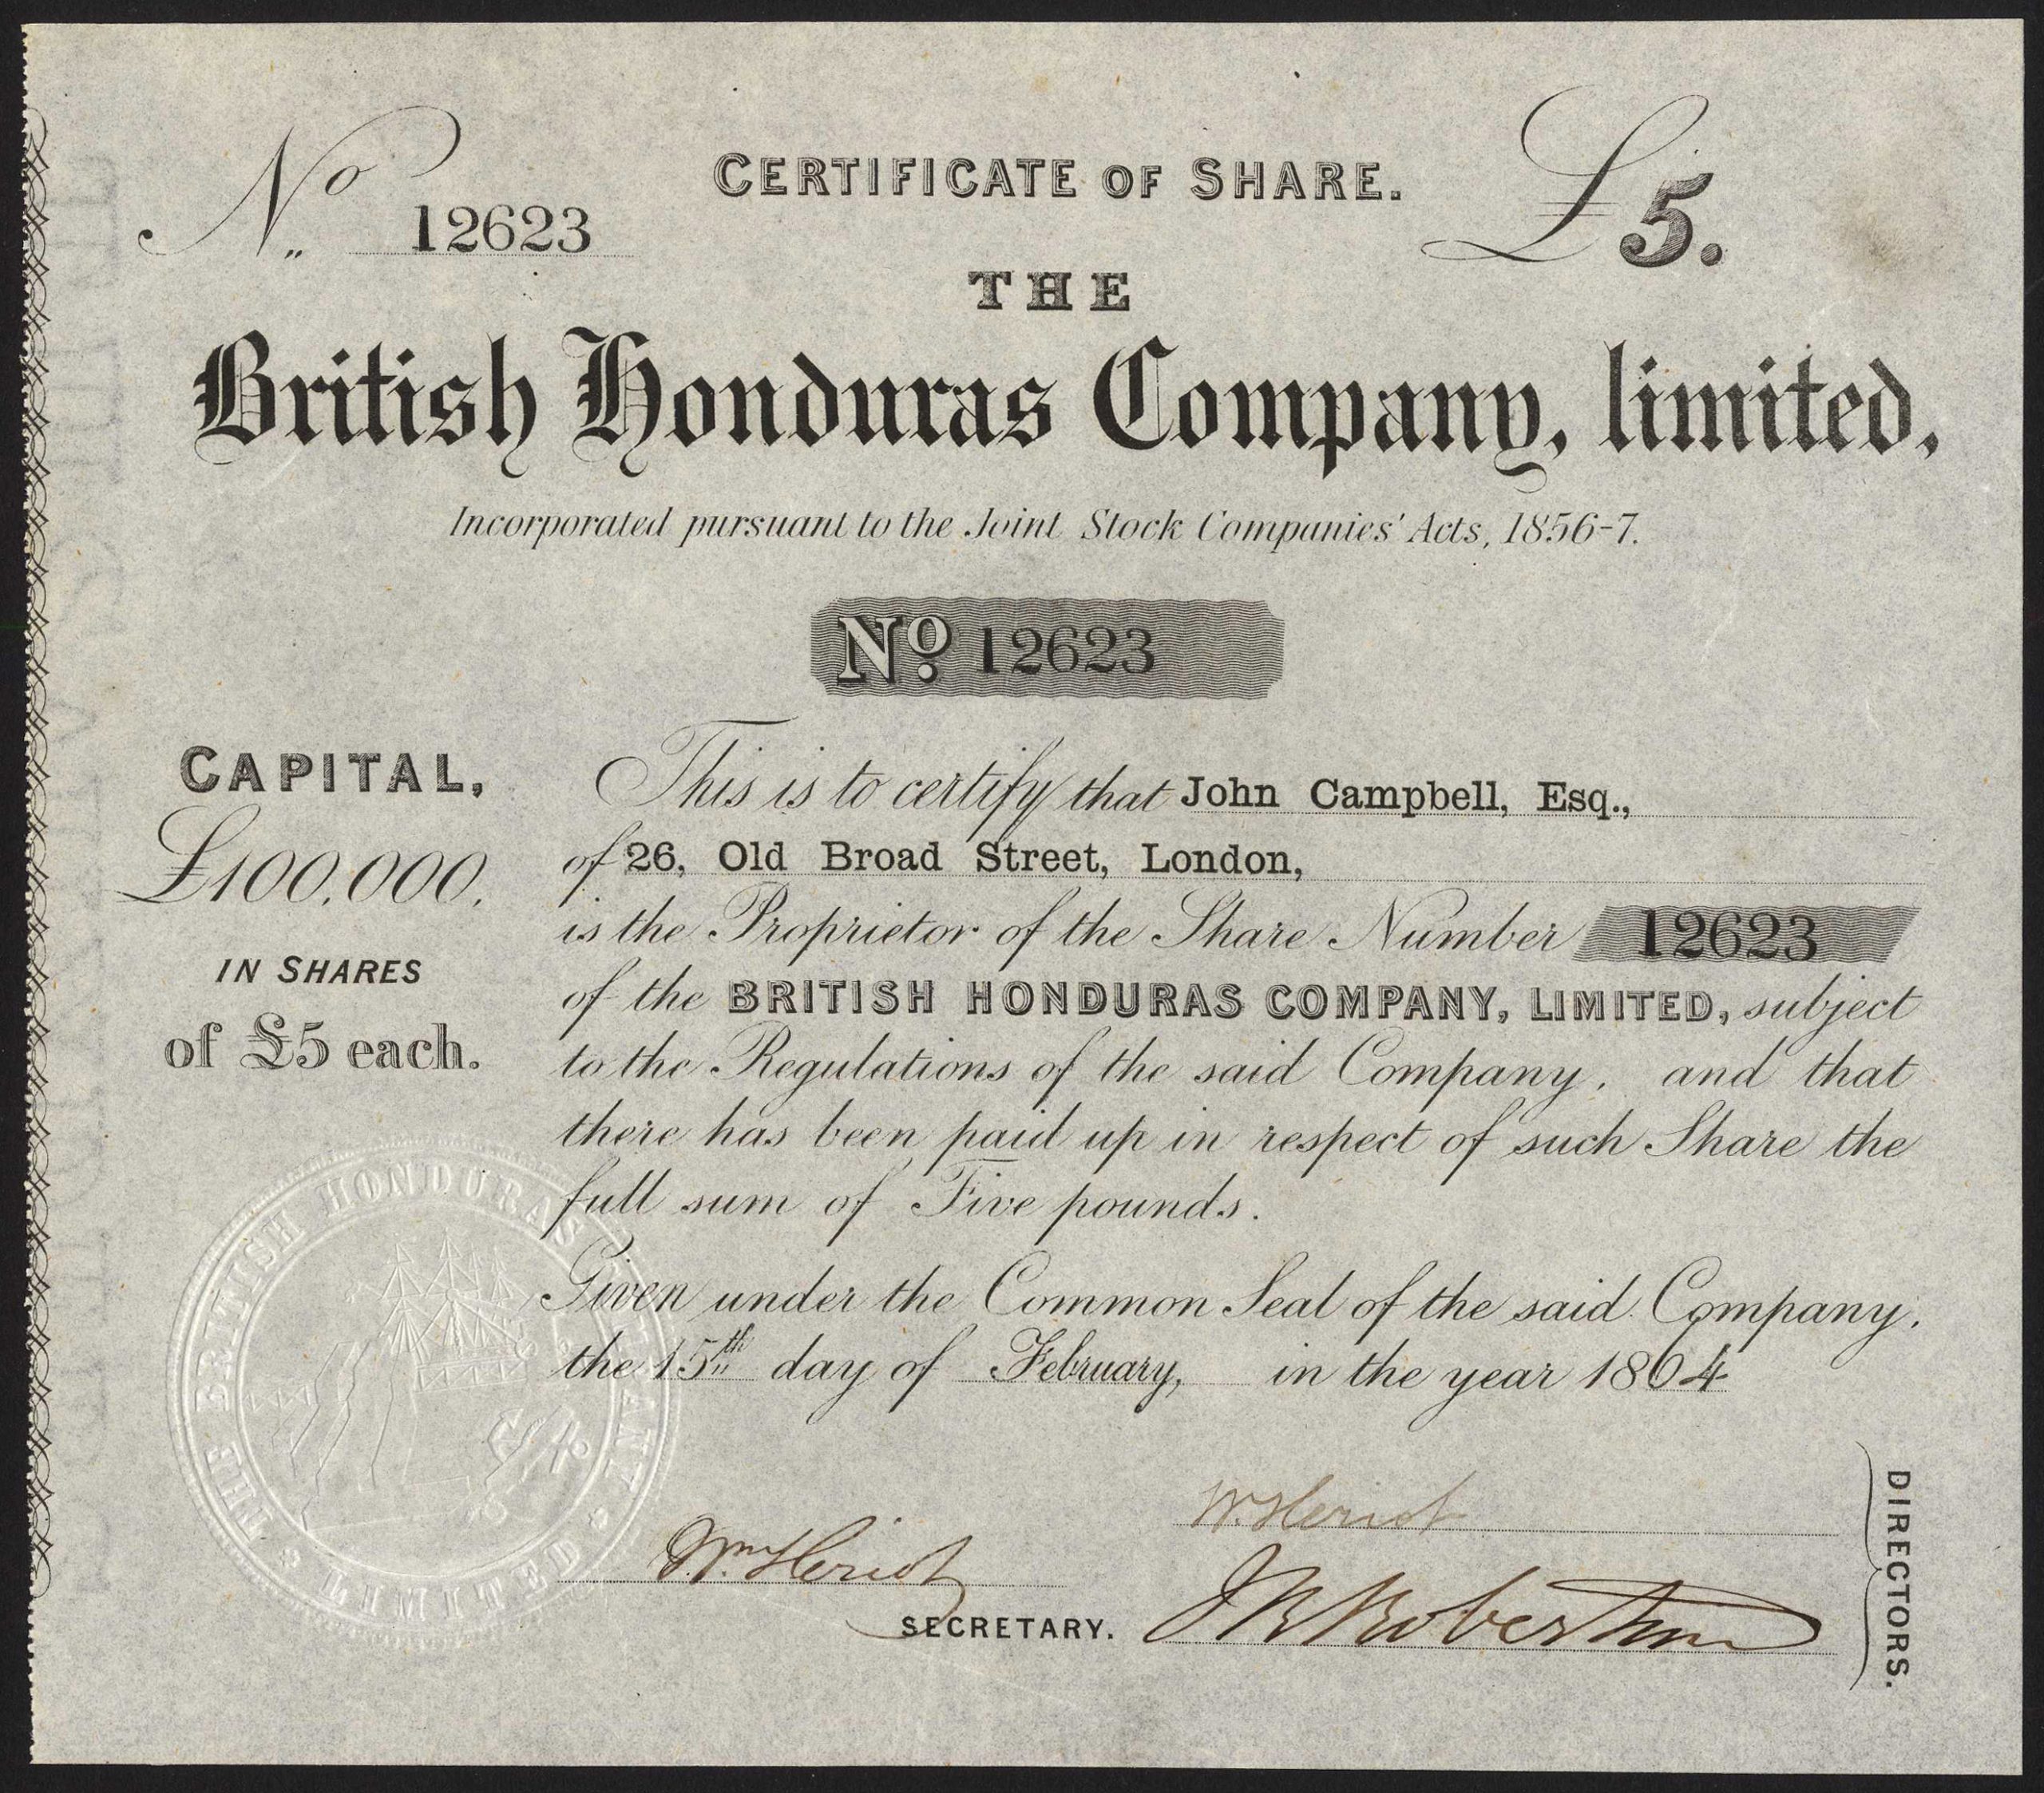 No 12623
CERTIFICATE OF SHARE.
£5.
THE
British Honduras Company, limited,
Incorporated pursuant to the Joint Stock Companies' Acts, 1856-7.
No. 12623
CAPITAL,
£100,000,
IN SHARES
of £5 each.
This is to certify that John Campbell, Esq.,
of 26, Old Broad Street, London,
is the Proprietor of the Share Number 12623
of the BRITISH HONDURAS COMPANY, LIMITED, subject
to the Regulations of the said Company, and that
there has been paid up in respect of such Share the
full sum of Five pounds.
Given under the Common Seal of the said Company,
the 15th day of February, in the year 1864
THE BRITISH HONDURAS COMPANY LIMITED
Wm Heriot
SECRETARY.
W. Heriot
DIRECTORS.